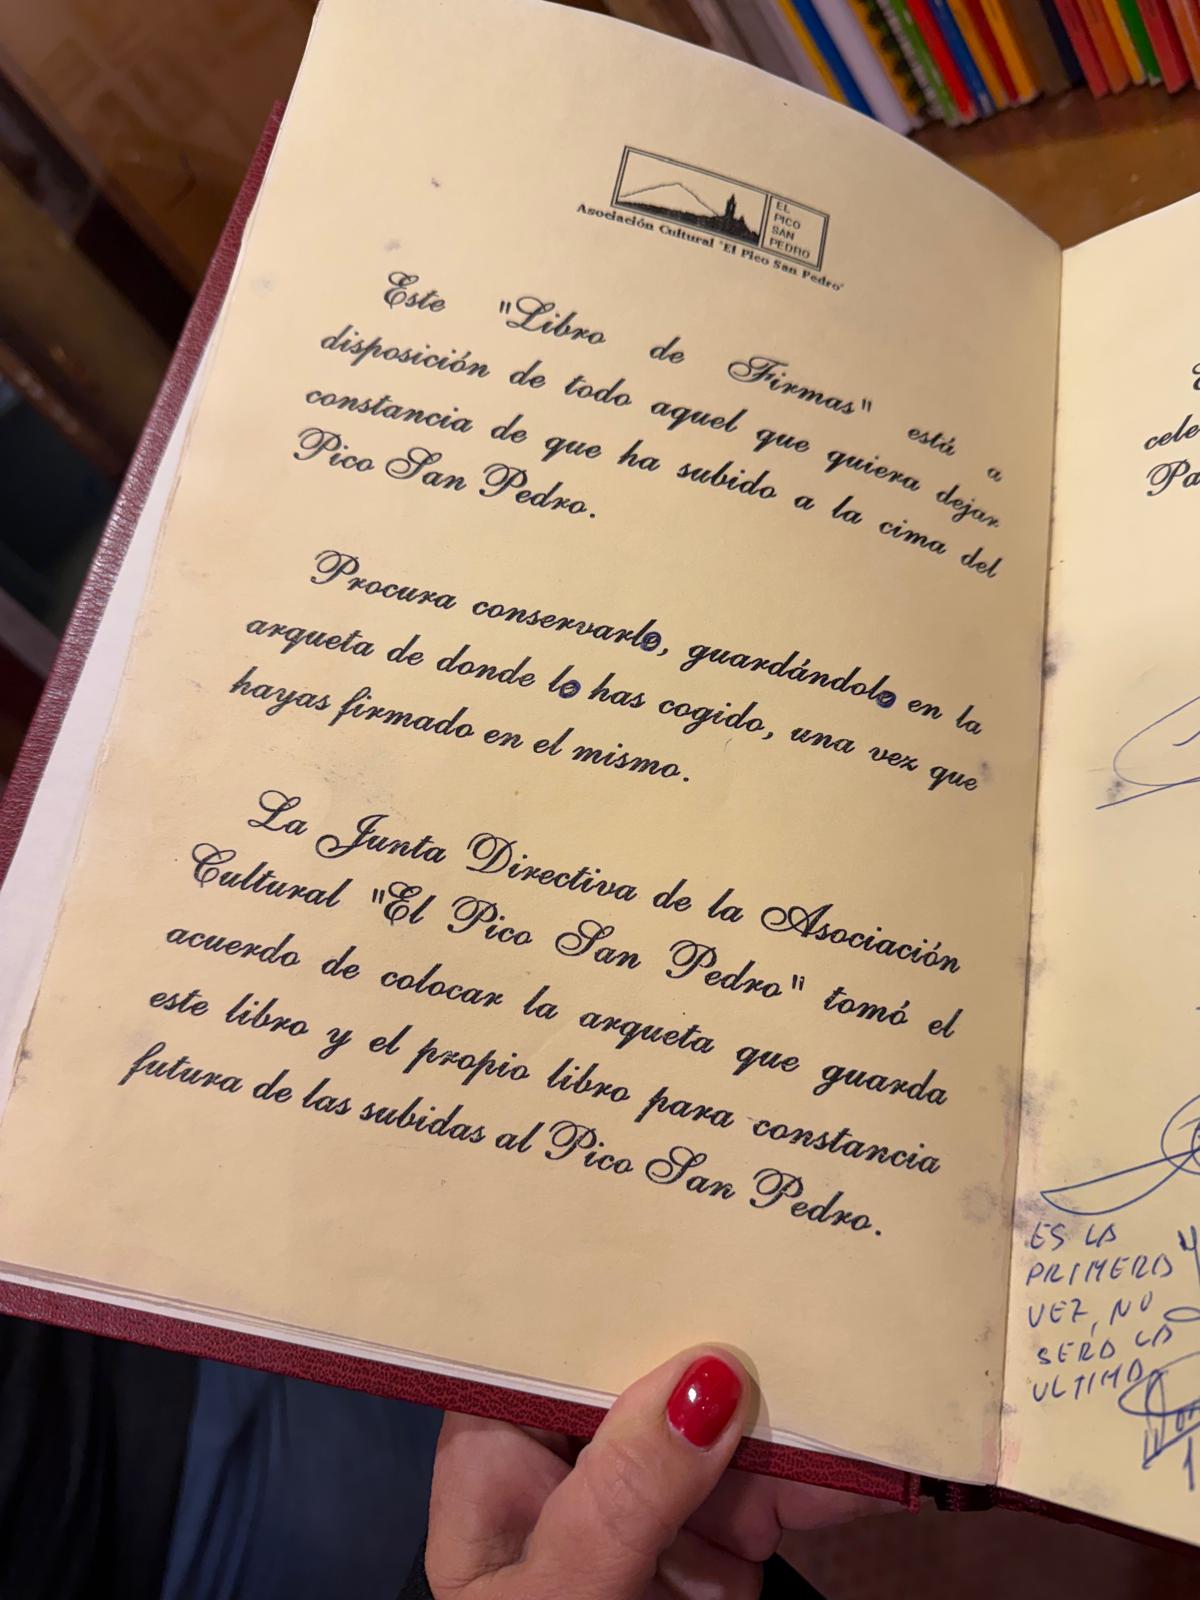 EL
PICO
SAN
PEDRO
Asociación Cultural "El Pico San Pedro"
Este "Libro de Firmas" está a
disposición de todo aquel que quiera dejar
constancia de que ha subido a la cima del
Pico San Pedro.
Procura conservarlo, guardándolo en la
arqueta de donde lo has cogido, una vez que
hayas firmado en el mismo.
La Junta Directiva de la Asociación
Cultural "El Pico San Pedro" tomó el
acuerdo de colocar la arqueta que guarda
este libro y el propio libro para constancia
futura de las subidas al Pico San Pedro.
cele
Pa
ES LA
PRIMERA
VEZ, NO
SERA LA
ULTIMA